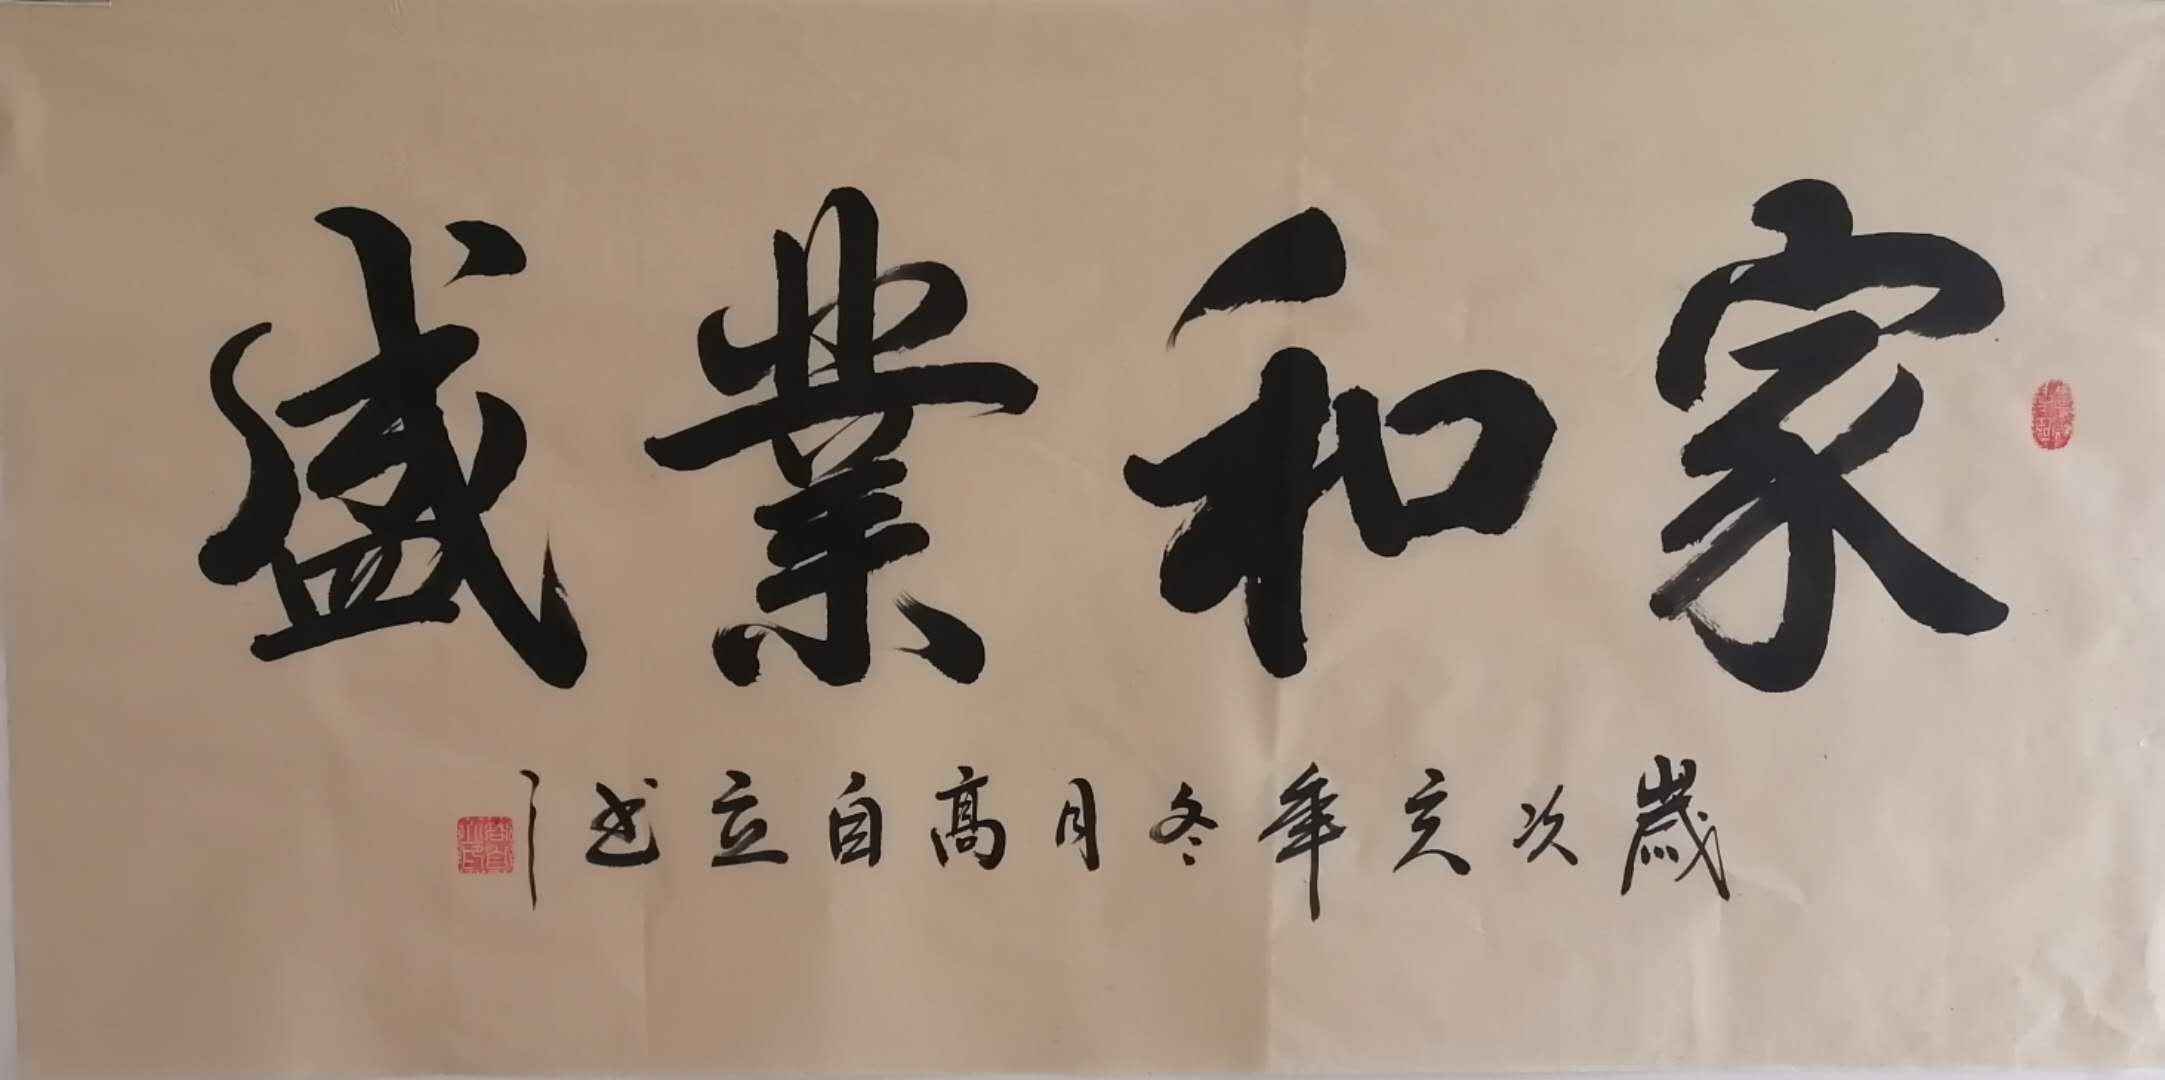 家和業盛
歲次亥年冬月高自立书